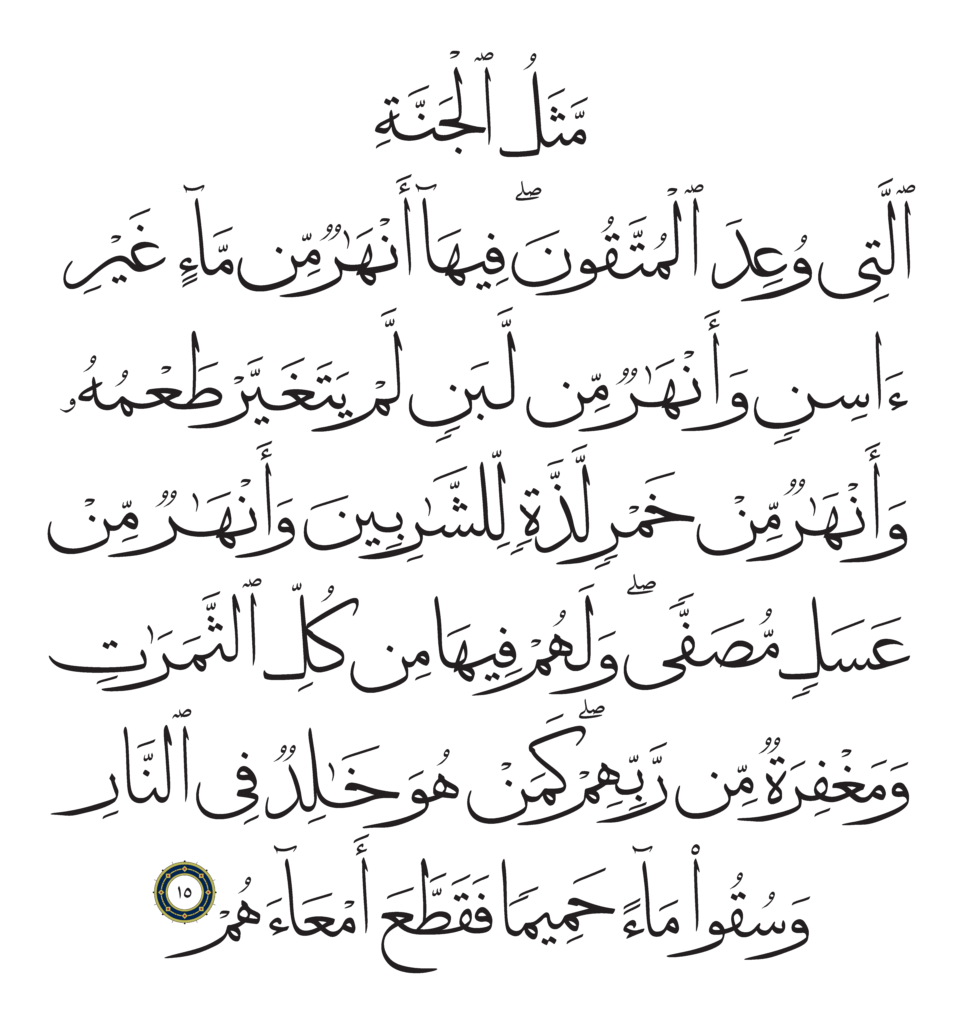 مَّثَلُ ٱلْجَنَّةِ
ٱلَّتِى وُعِدَ ٱلْمُتَّقُونَ ۖ فِيهَآ أَنْهَـٰرٌ مِّن مَّآءٍ غَيْرِ
ءَاسِنٍ وَأَنْهَـٰرٌ مِّن لَّبَنٍ لَّمْ يَتَغَيَّرْ طَعْمُهُۥ
وَأَنْهَـٰرٌ مِّنْ خَمْرٍ لَّذَّةٍ لِّلشَّـٰرِبِينَ وَأَنْهَـٰرٌ مِّنْ
عَسَلٍ مُّصَفًّى ۖ وَلَهُمْ فِيهَا مِن كُلِّ ٱلثَّمَرَٰتِ
وَمَغْفِرَةٌ مِّن رَّبِّهِمْ ۖ كَمَنْ هُوَ خَـٰلِدٌ فِى ٱلنَّارِ
وَسُقُوا۟ مَآءً حَمِيمًا فَقَطَّعَ أَمْعَآءَهُمْ ١٥